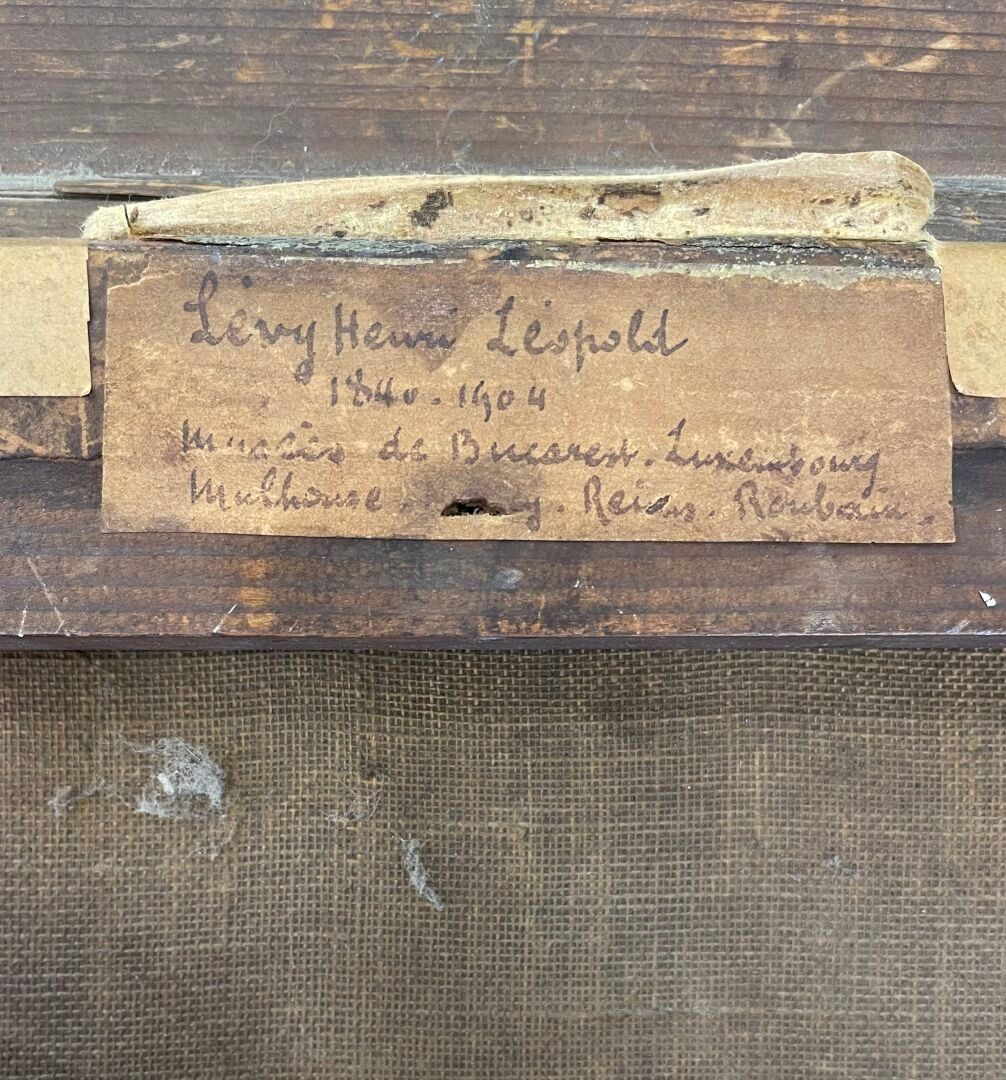 Lévy Henri Léopold
1840 - 1904
Musées de Bucarest. Luxembourg
Mulhouse. Reims. Roubaix.